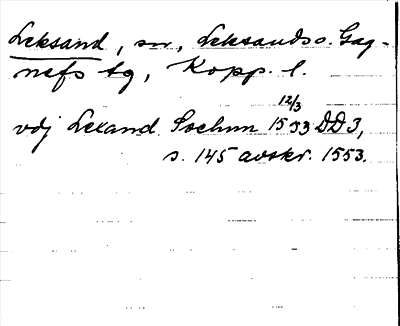 Leksand, sn, Leksands o. Gag-
nefs tg, Kopp. l.
12/3
vdj Lexand Sochnn 1533 DD 3,
s. 145 avskr. 1553.